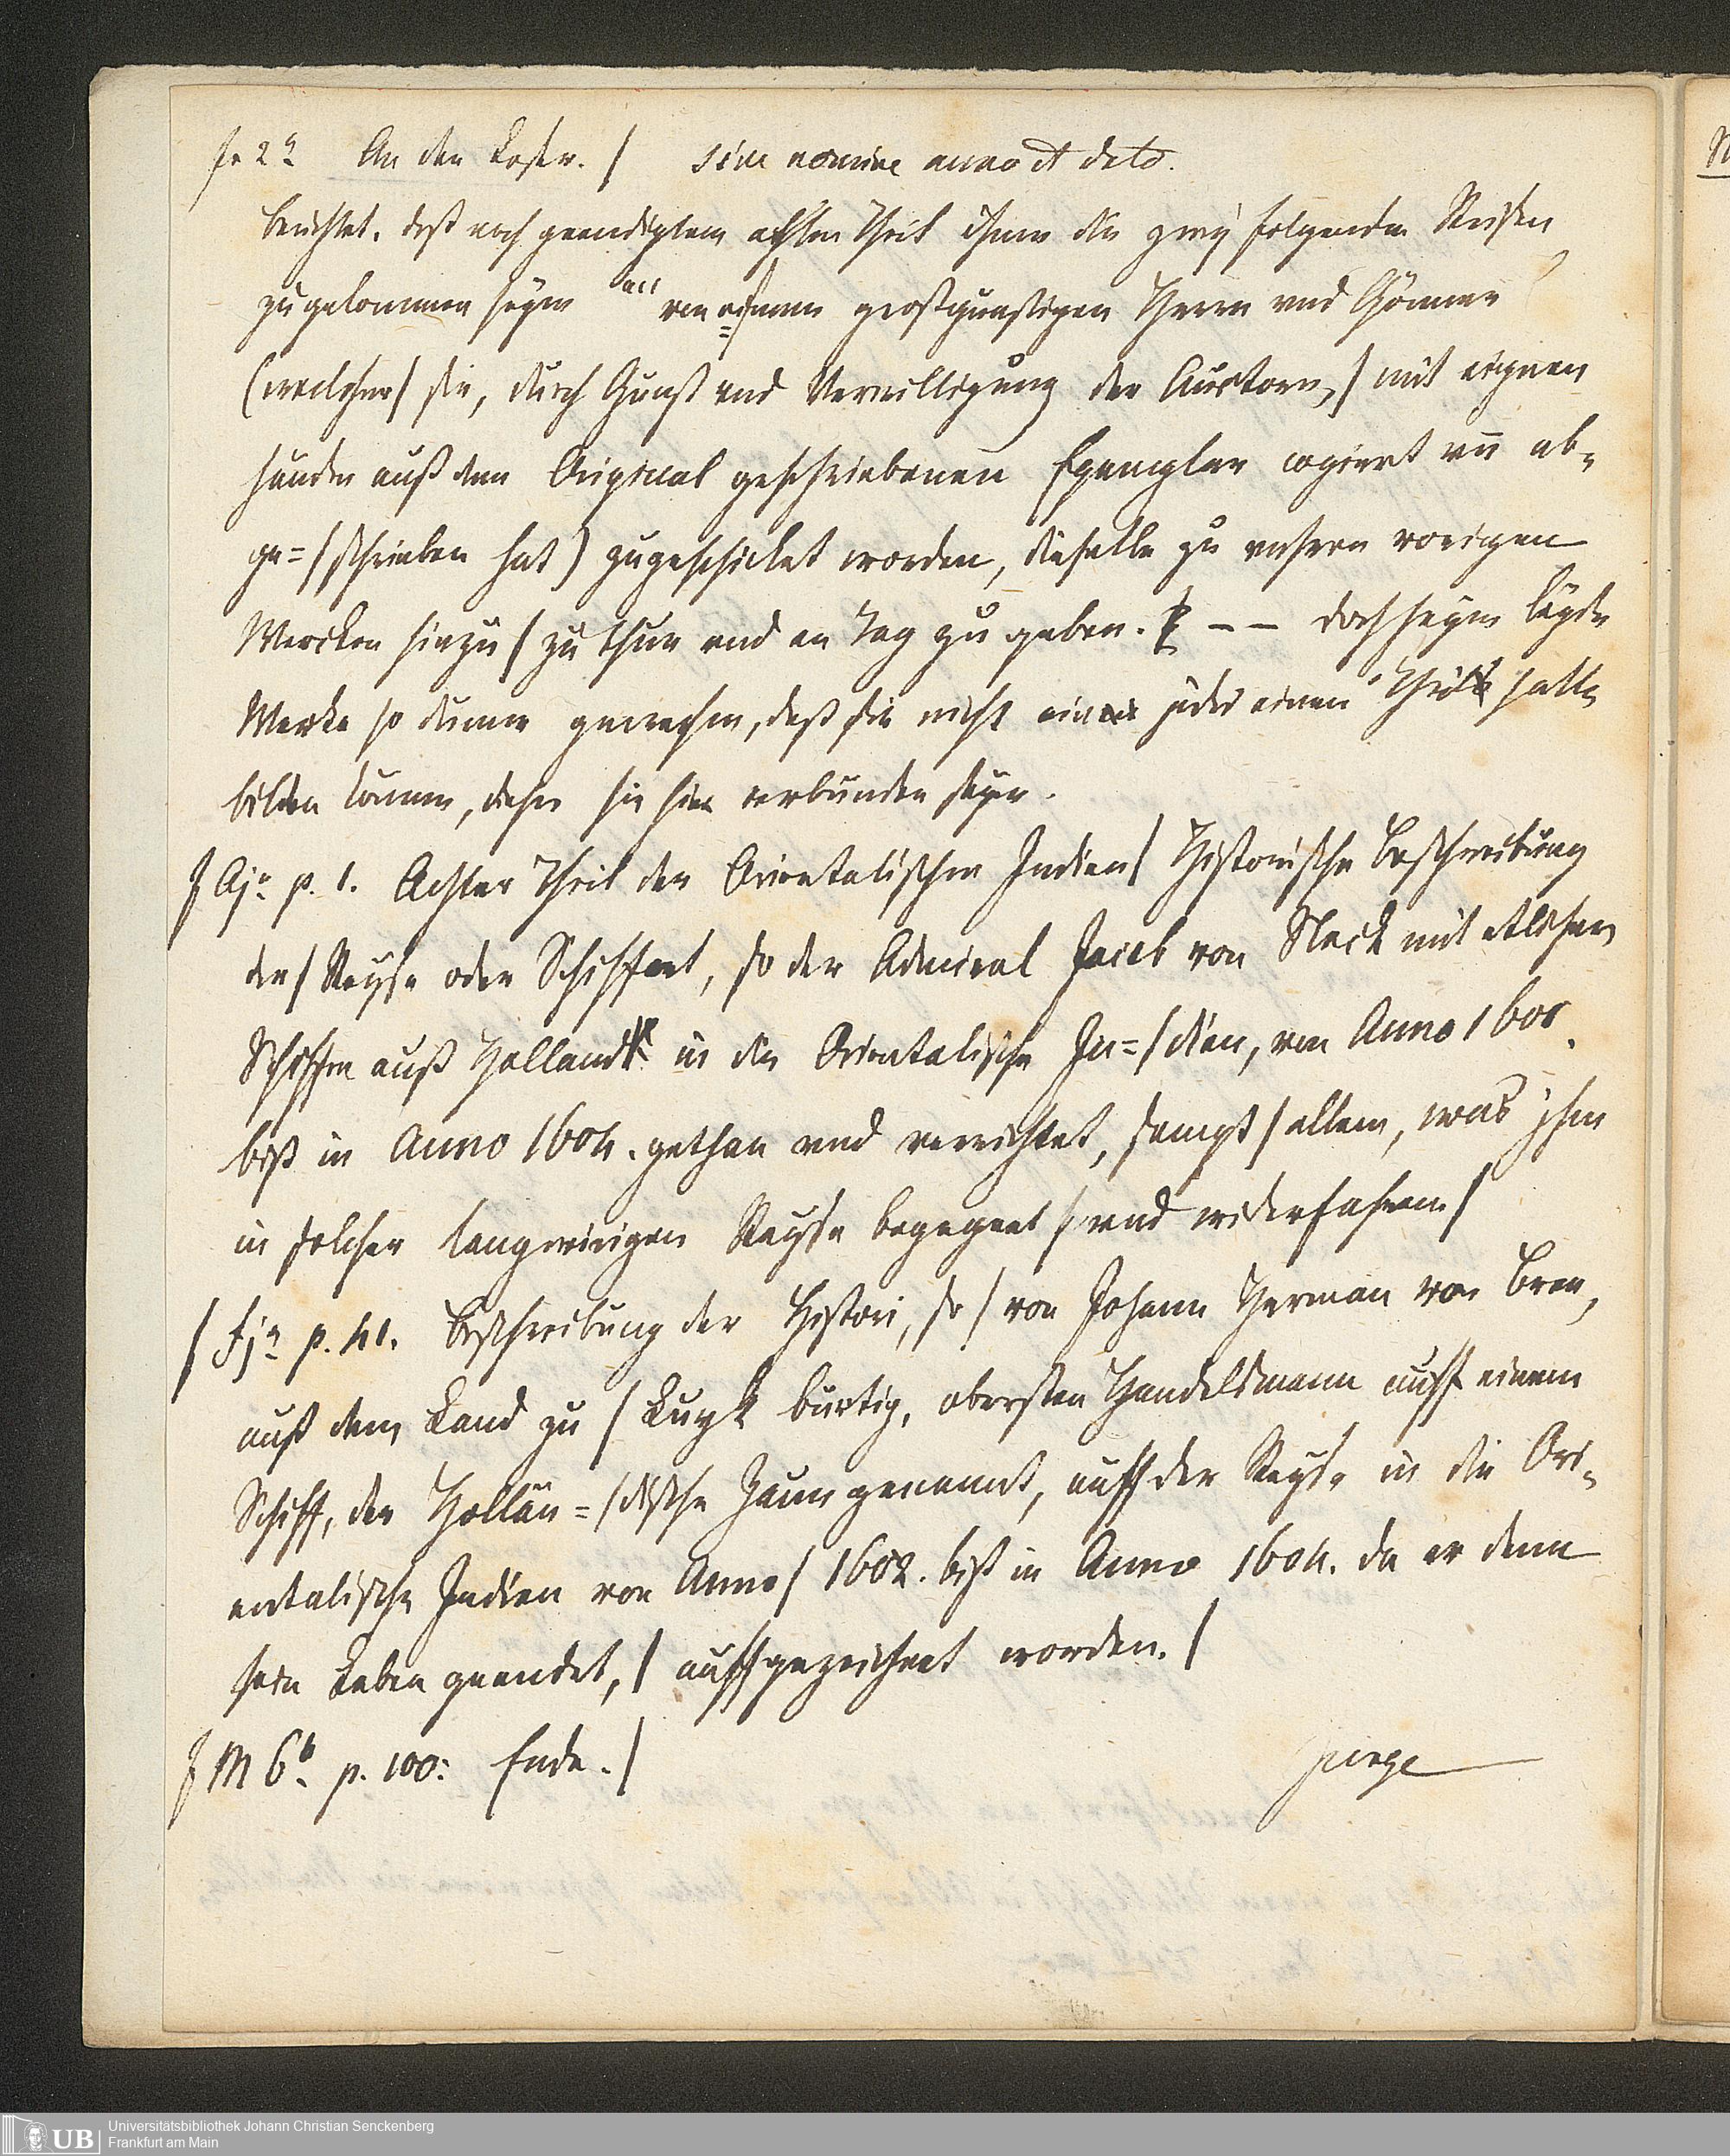 fr 2a An den Leser. / sine nomine anno et dato.
berichtet, daß nach geendigtem achten Theil ihnen die zwey folgenden Reisen
zugekommen seyen "von einem großgunstigen Herrn vnd Gönner
(welcher / sie, durch Gunst vnd Verwilligung der Auctorn, / mit eignen
händen auß dem Original geschriebenen Exemplar copiert vn ab-
ge= / schrieben hat) zugeschicket worden, dieselbe zu vnsern vorigen
Wercken hinzu / zu thun vnd an Tag zu geben. – – doch seyen beyde
Werke so dünne gewesen, daß sie nicht jedes einen Theil hatte
bilden können, daher sie hier verbunden seyen.
/ Aja p. 1. Achter Theil der Orientalischen Indien / Historische Beschreibung
der / Reyse oder Schiffart, so der Admiral Jacob von Neck mit etlichen
Schiffen auß Hollandt in die Orientalische In= / dien, von Anno 1600.
biß in Anno 1604. gethan vnd verrichtet, sampt / allem, was jhm
in solcher langwirigen Reyse begegnet / vnd widerfahren /
/ Fja p. 41. Beschreibung der Histori, so / von Johann Herman von Bree,
auß dem Land zu / Luyk bürtig, obersten Handelsmann auff einem
Schiff, der Hollän= / dische Zaun genannt, auff der Reyse in die Ori-
entalische Indien von Anno / 1602. biß in Anno 1604. da er denn
sein Leben geendet, / auffgezeichnet worden. /
/ M 6b. p. 100: Ende. /
purge
Universitätsbibliothek Johann Christian Senckenberg
Frankfurt am Main
UB